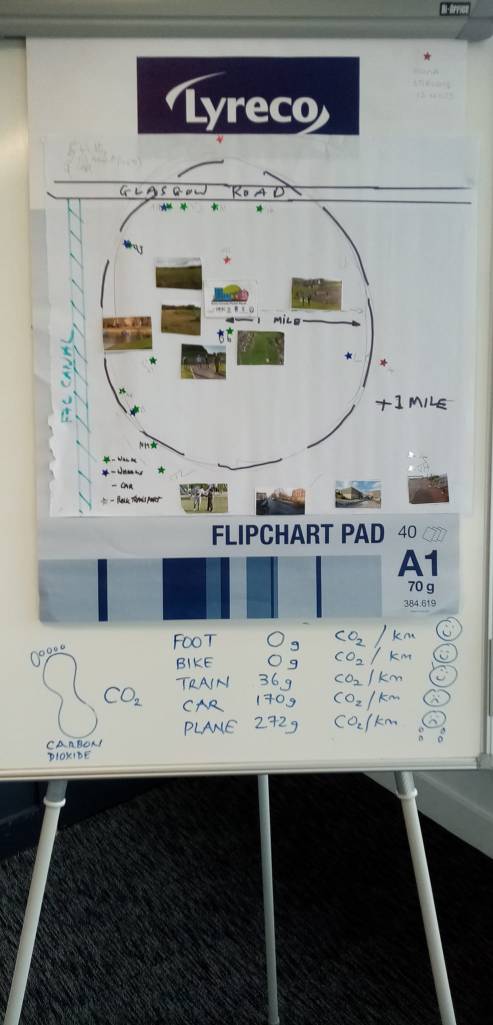 BI-OFFICE
Lyreco
GLASGOW ROAD
1 MILE
F&C CANAL
+1 MILE
- WALK
- WHEELS
- CAR
FLIPCHART PAD 40
A1
70 g
384.619
FOOT 0g CO2 / km
BIKE 0g CO2 / km
TRAIN 36g CO2 / km
CAR 170g CO2 / km
PLANE 272g CO2/km
CO2
CARBON
DIOXIDE